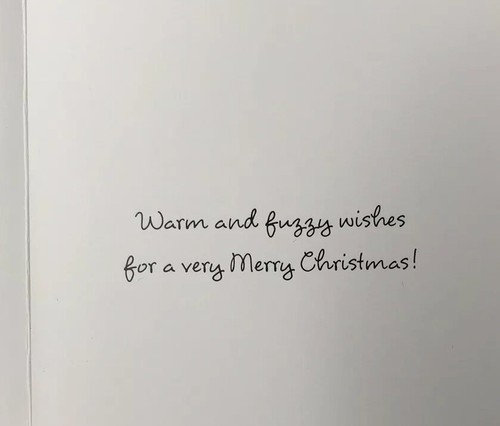 Warm and fuzzy wishes
for a very Merry Christmas!